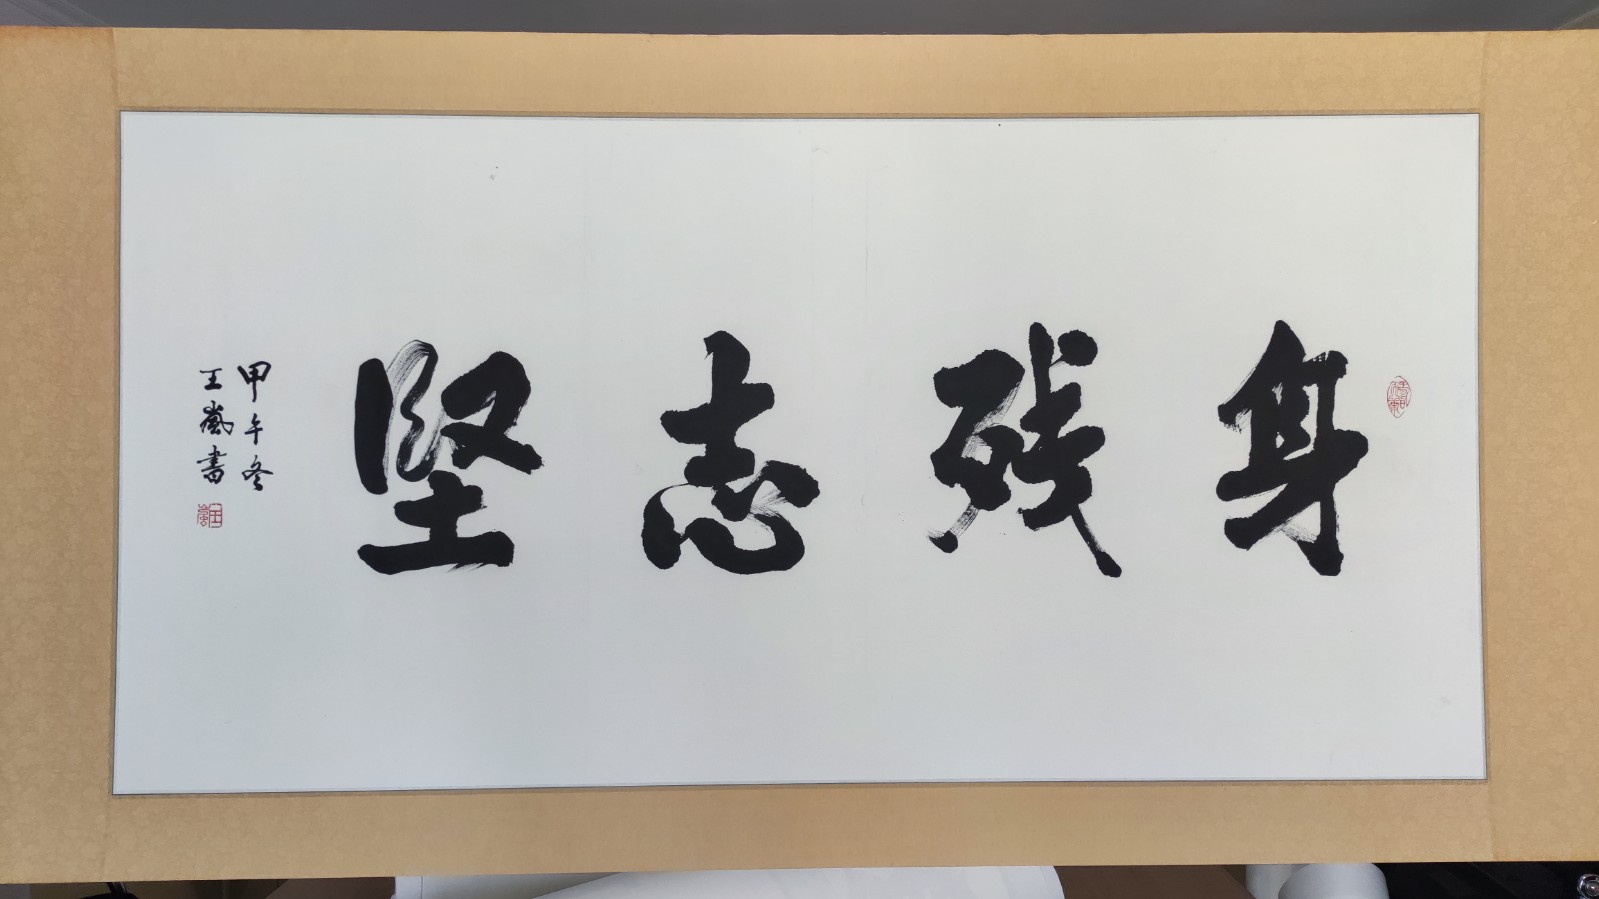 身残志坚
甲午冬
王嵐書